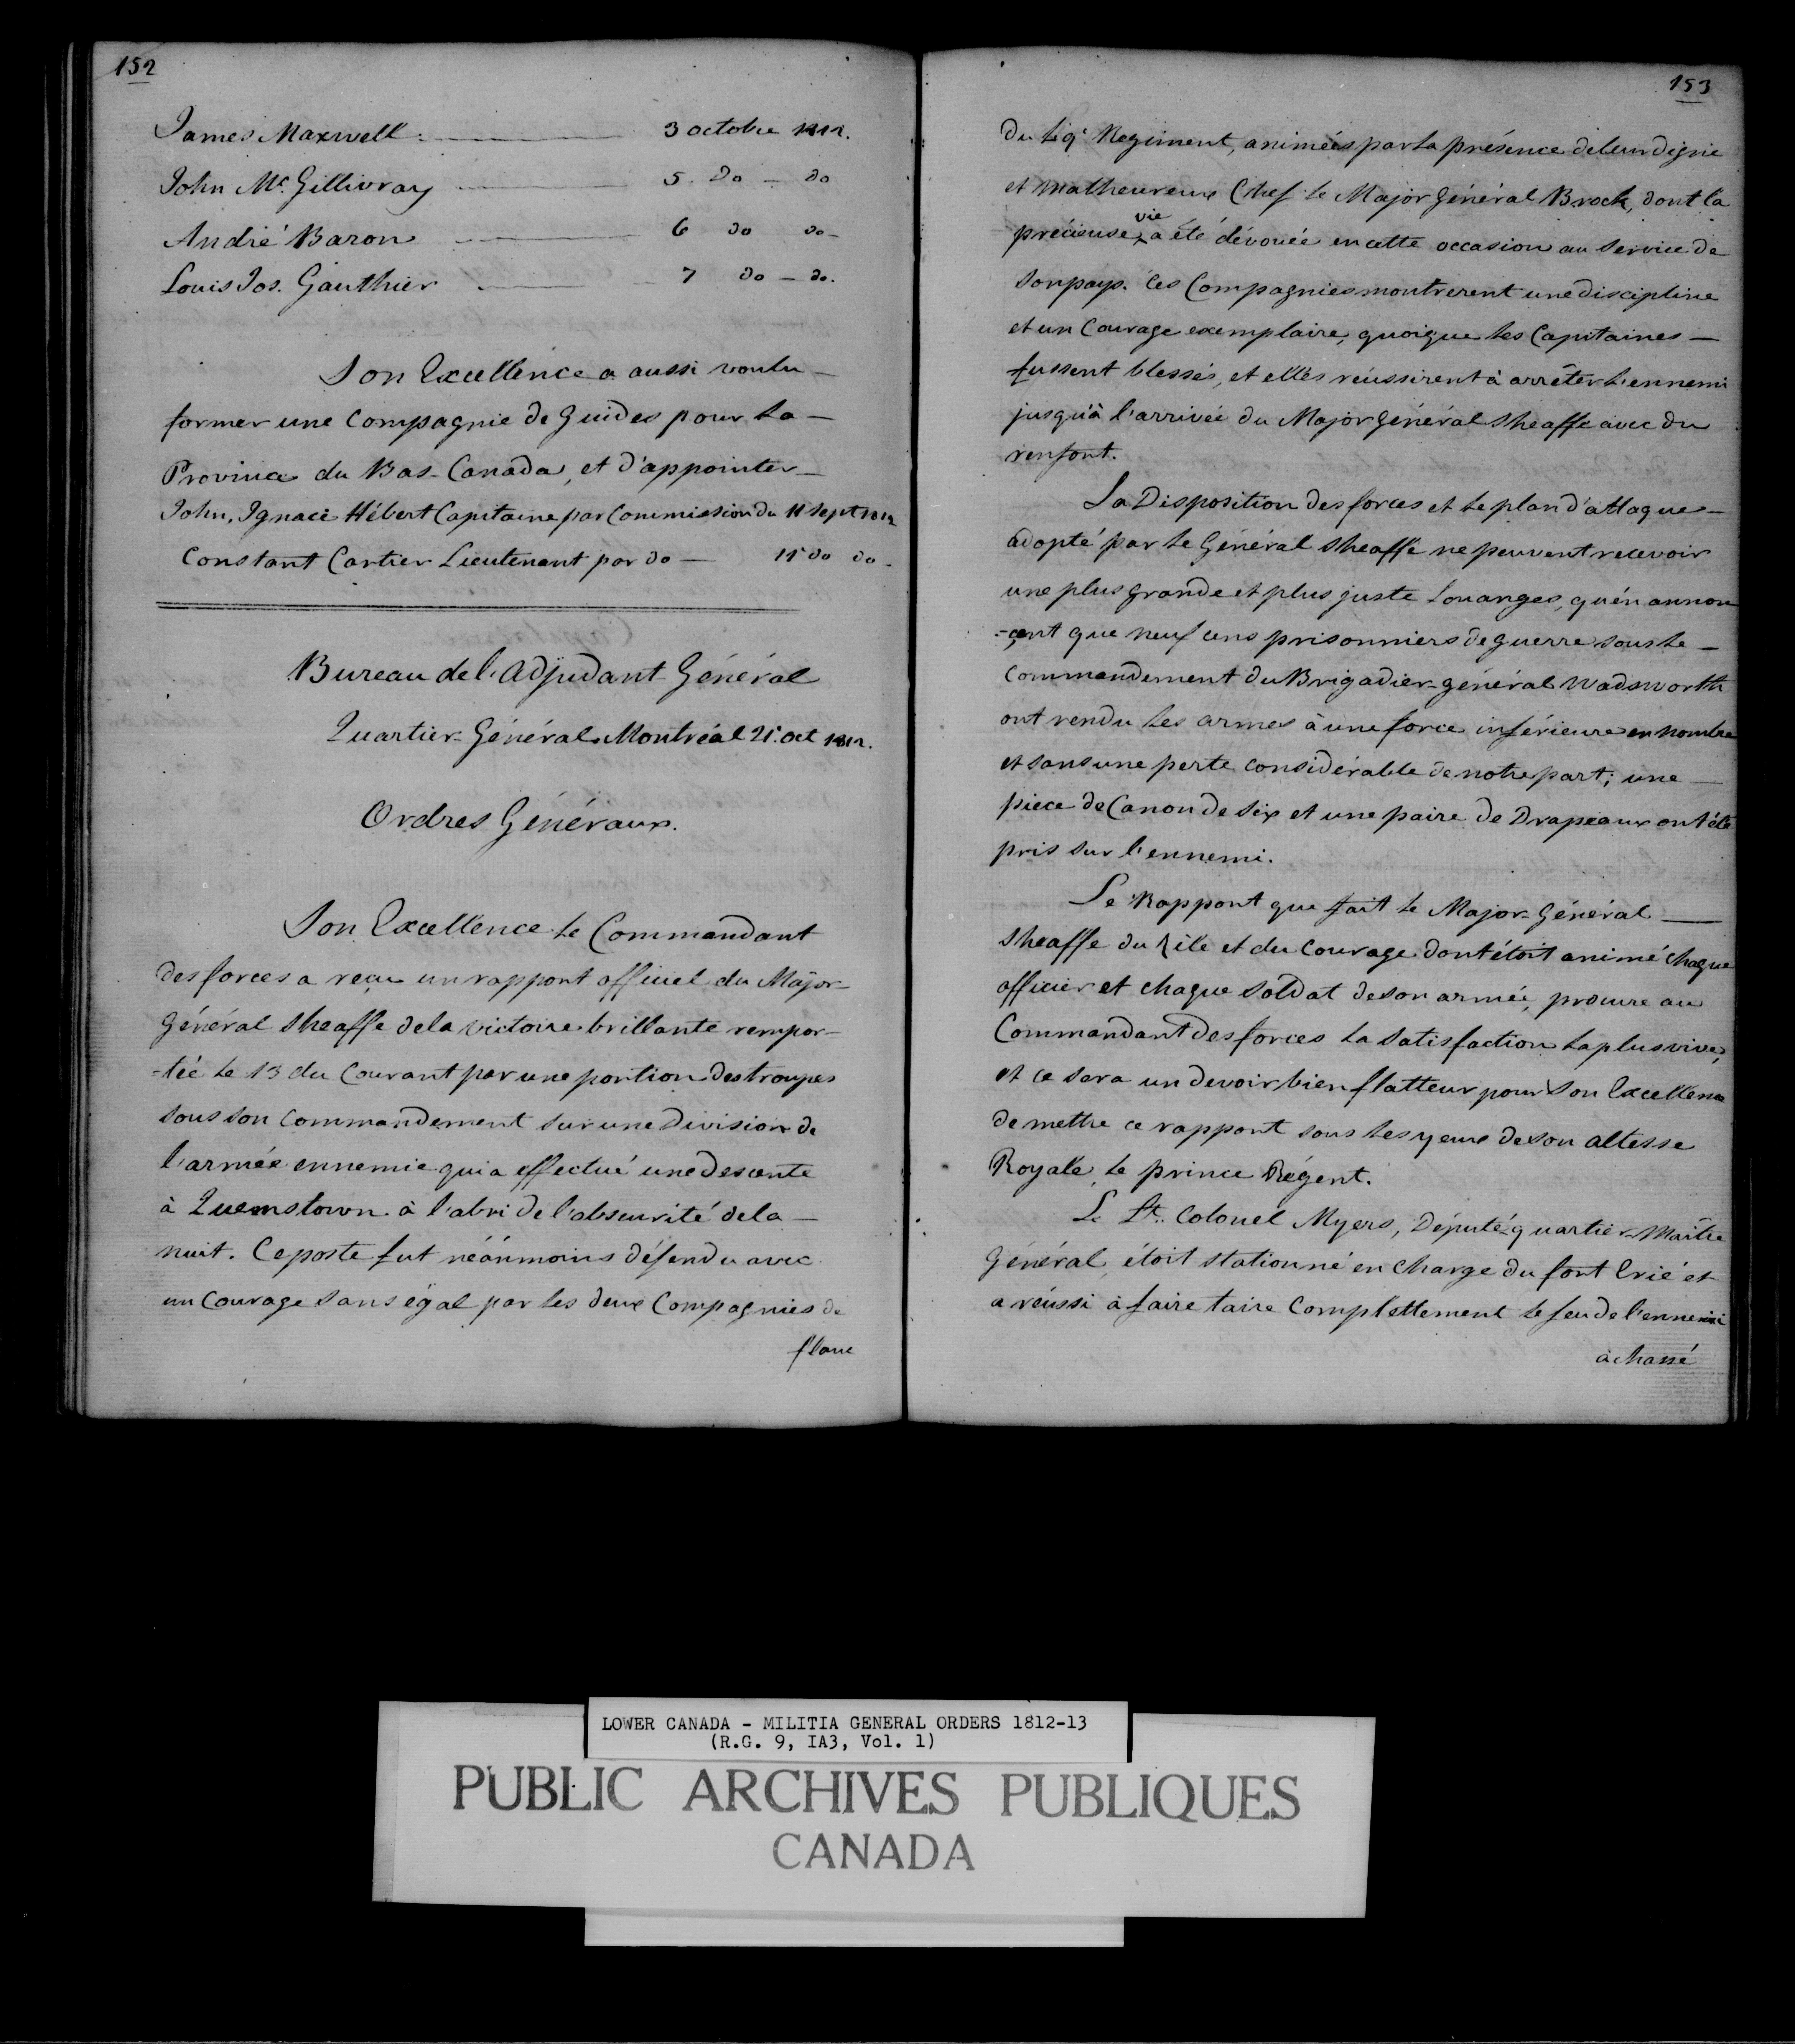 152
James Maxwell. 3 octobre 1812.
John Mc. Gillivray 5. do - do
André Baron 6 do do -
Louis Jos. Gauthier 7 do - do.
Son Excellence a aussi voulu -
former une Compagnie de Guides pour la -
Province du Bas-Canada, et d'appointer -
John, Ignace Hébert Capitaine par Commission du 11 Sept 1812
Constant Cartier Lieutenant par do - 11 do do -
Bureau de l'Adjudant Général
Quartier Général Montréal 21. Oct 1812.
Ordres Généraux.
Son Excellence le Commandant
des forces a reçu un rapport officiel du Major-
Général Sheaffe de la victoire brillante rempor-
-tée le 13 du Courant par une portion des troupes
sous son commandement sur une Division de
l'armée ennemie qui a effectué une descente
à Queenstown à l'abri de l'obscurité de la -
nuit. Ce poste fut néanmoins défendu avec
un Courage sans égal par les deux Compagnies de
flanc
153
du 49e Regiment, animées par la présence de leur digne
et malheureux Chef le Major Général Brock, dont la
précieuse vie a été dévouée en cette occasion au service de
son pays. Ces Compagnies montrerent une discipline
et un Courage exemplaire, quoique les Capitaines -
fussent blessés, et elles réussirent à arrêter l'ennemi
jusqu'à l'arrivée du Major Général Sheaffe avec du
renfort.
La Disposition des forces et le plan d'attaque -
adopté par le Général Sheaffe ne peuvent recevoir
une plus grande et plus juste Louanges, qu'en annon
-çant que neuf cens prisonniers de guerre sous le -
Commandement du Brigadier-général Wadsworth
ont rendu les armes à une force inférieure en nombre
et sans une perte considérable de notre part; une -
piece de Canon de six et une paire de Drapeaux ont été
pris sur l'ennemi.
Le Rapport que fait le Major Général -
Sheaffe du zèle et du Courage dont étoit animé chaque
officier et chaque soldat de son armée, procure au
Commandant des forces la satisfaction la plus vive,
et ce sera un devoir bien flatteur pour Son Excellence
de mettre ce rapport sous les yeux de son altesse
Royale, le prince Régent.
Le Lt. Colonel Myers, Député-quartier-Maître
Général, étoit stationné en charge du fort Erié et
a réussi à faire taire complettement le feu de l'ennemi
a chassé
LOWER CANADA - MILITIA GENERAL ORDERS 1812-13
(R.G. 9, IA3, Vol. 1)
PUBLIC ARCHIVES PUBLIQUES
CANADA